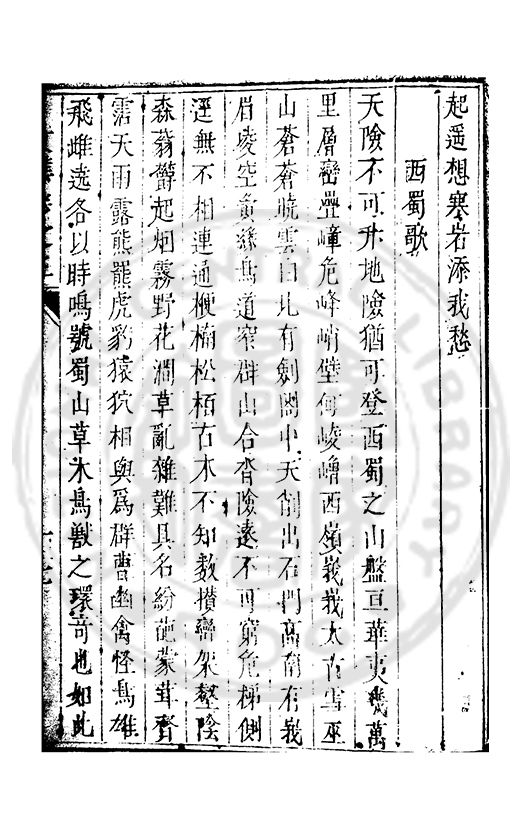 起遥想寒岩添我愁
西蜀歌
天險不可升地險猶可登西蜀之山盤亘華夷幾萬
里層巒疊嶂危峰峭壁何崚嶒西嶺峩峩太古雪巫
山蒼蒼曉雲白北有劍閣中天削出石門高南有峩
眉凌空黄綠鳥道窄群山合沓險遠不可窮危梯側
逕無不相連通楩楠松栢古木不知數攢巒架壑陰
森蓊欝起烟霧野花澗草亂雜難具名紛葩蒙茸霑
濡天雨露熊羆虎豹猿狖相與爲群曹幽禽怪鳥雄
飛雌遶各以時鳴號蜀山草木鳥獸之瓌竒也如此